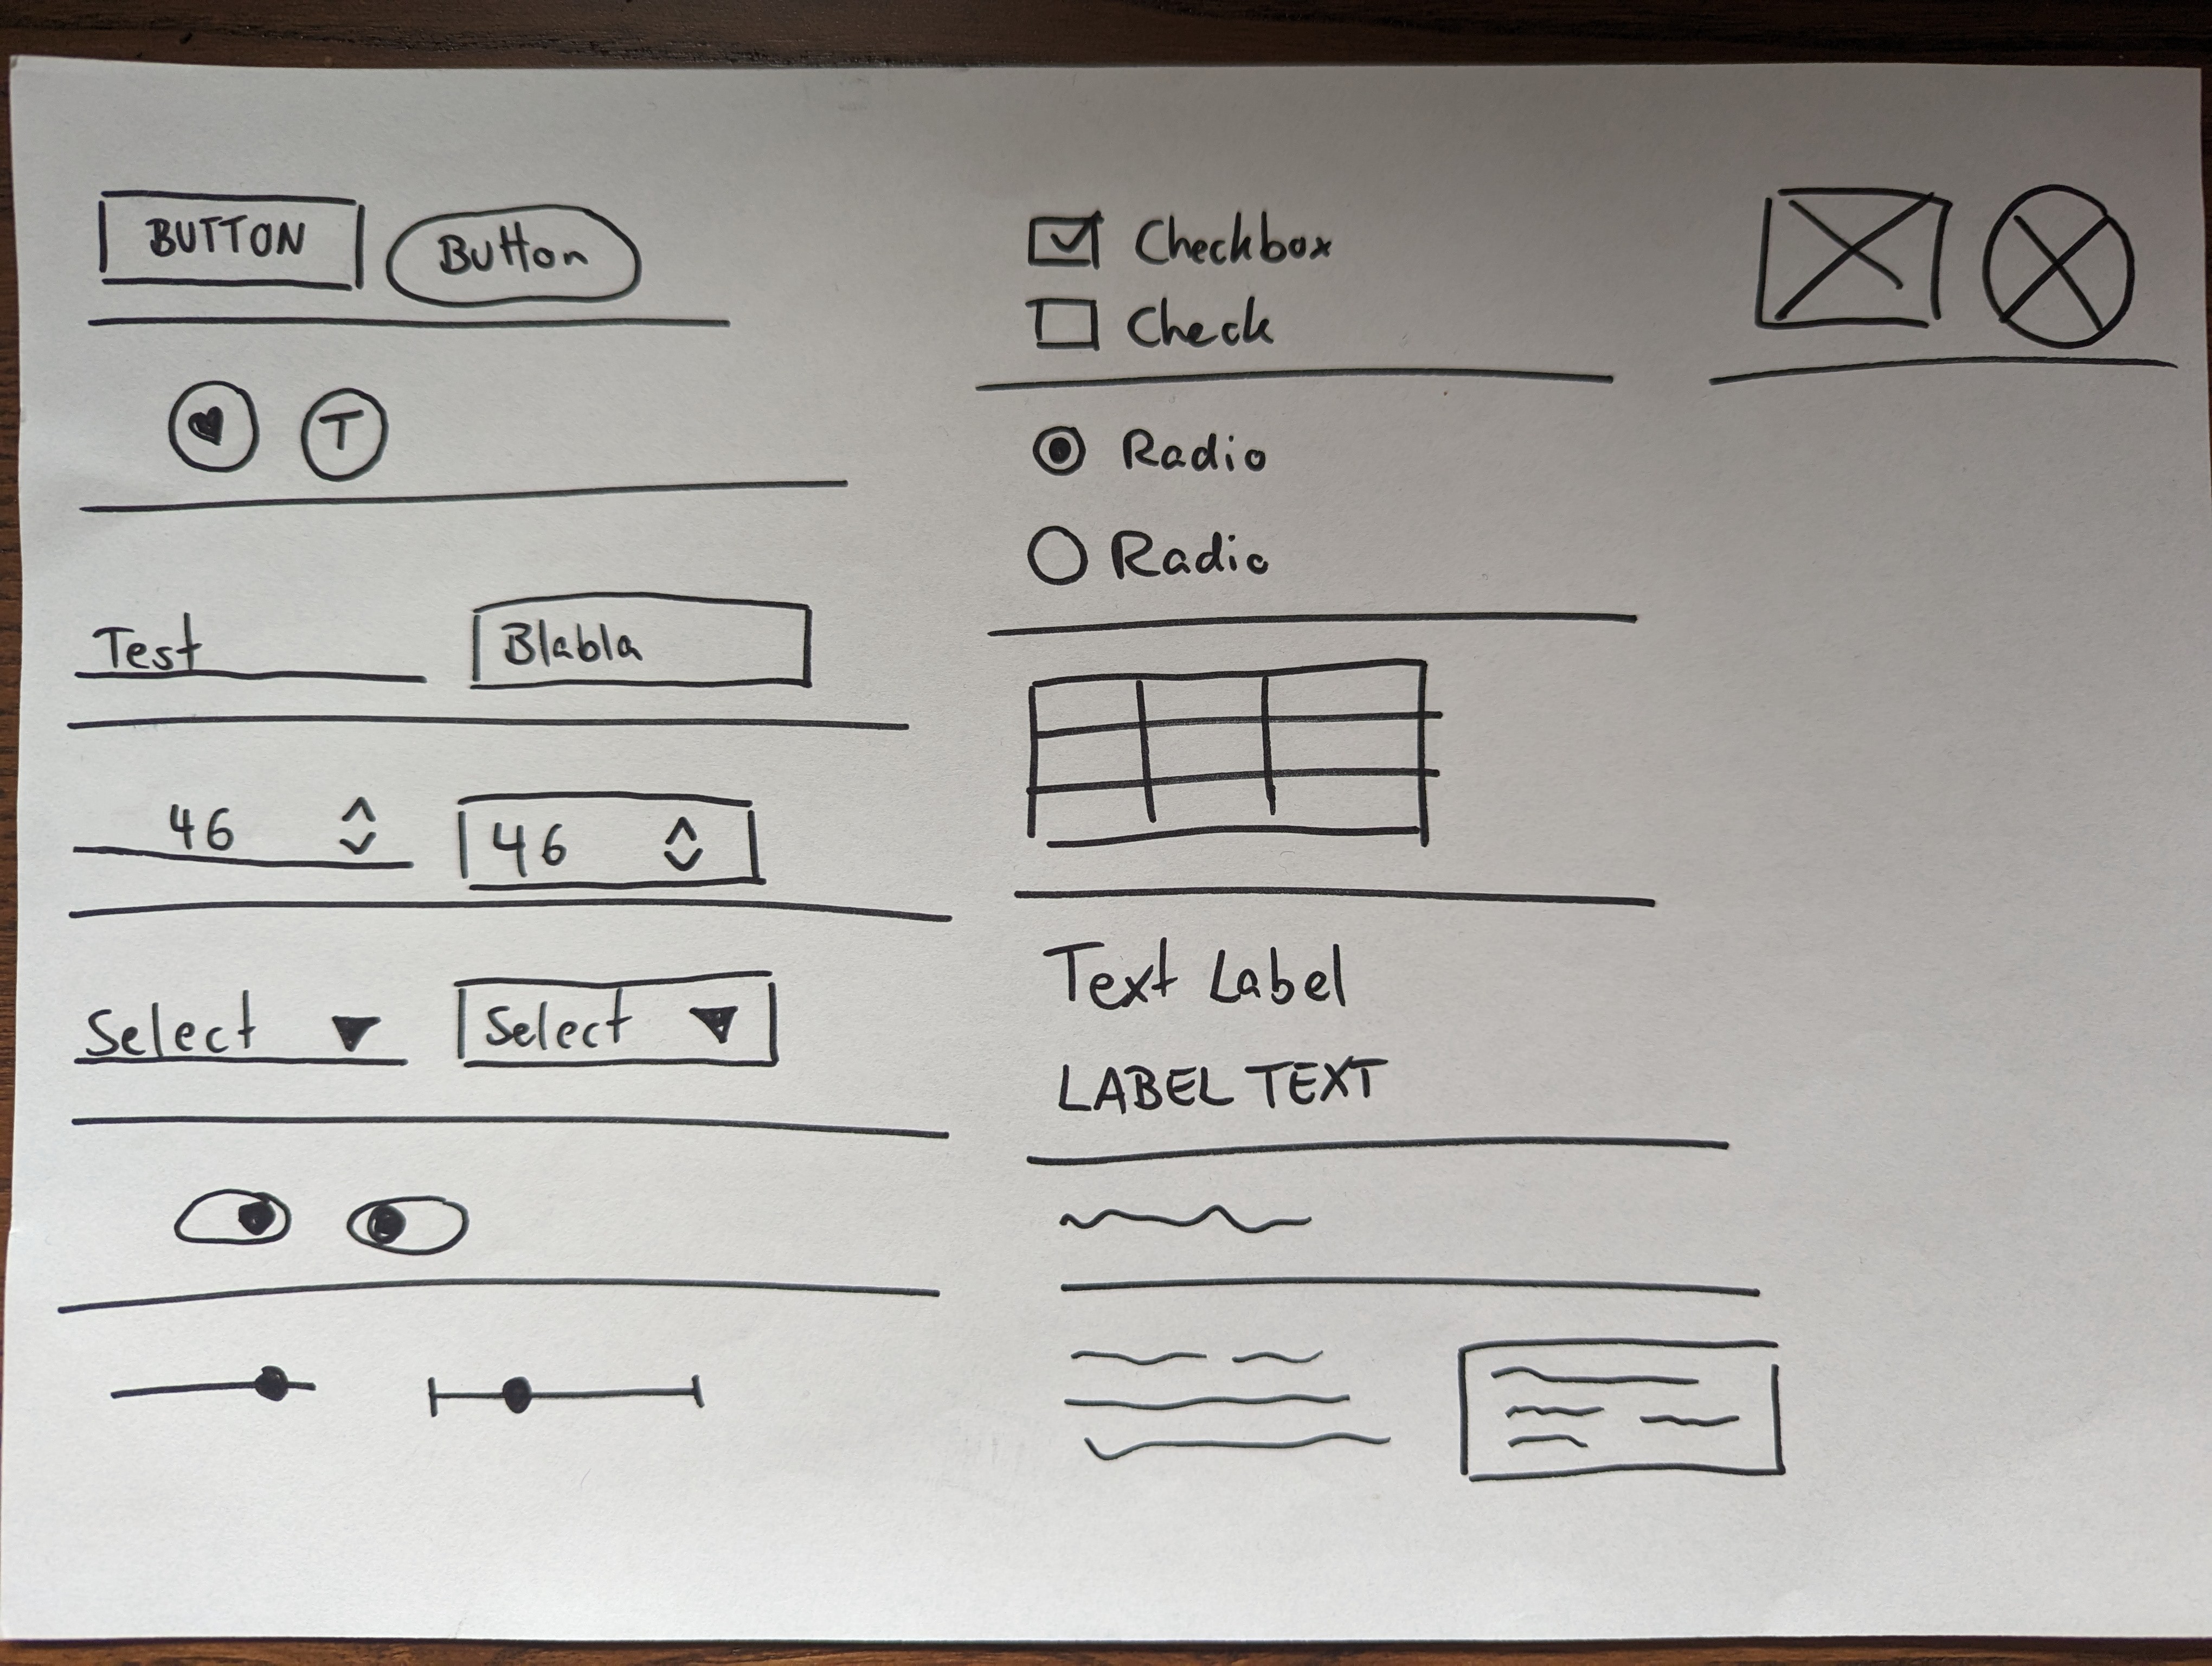 BUTTON
Button
T
Test
Blabla
46
46
Select
Select
Checkbox
Check
Radio
Radio
Text Label
LABEL TEXT